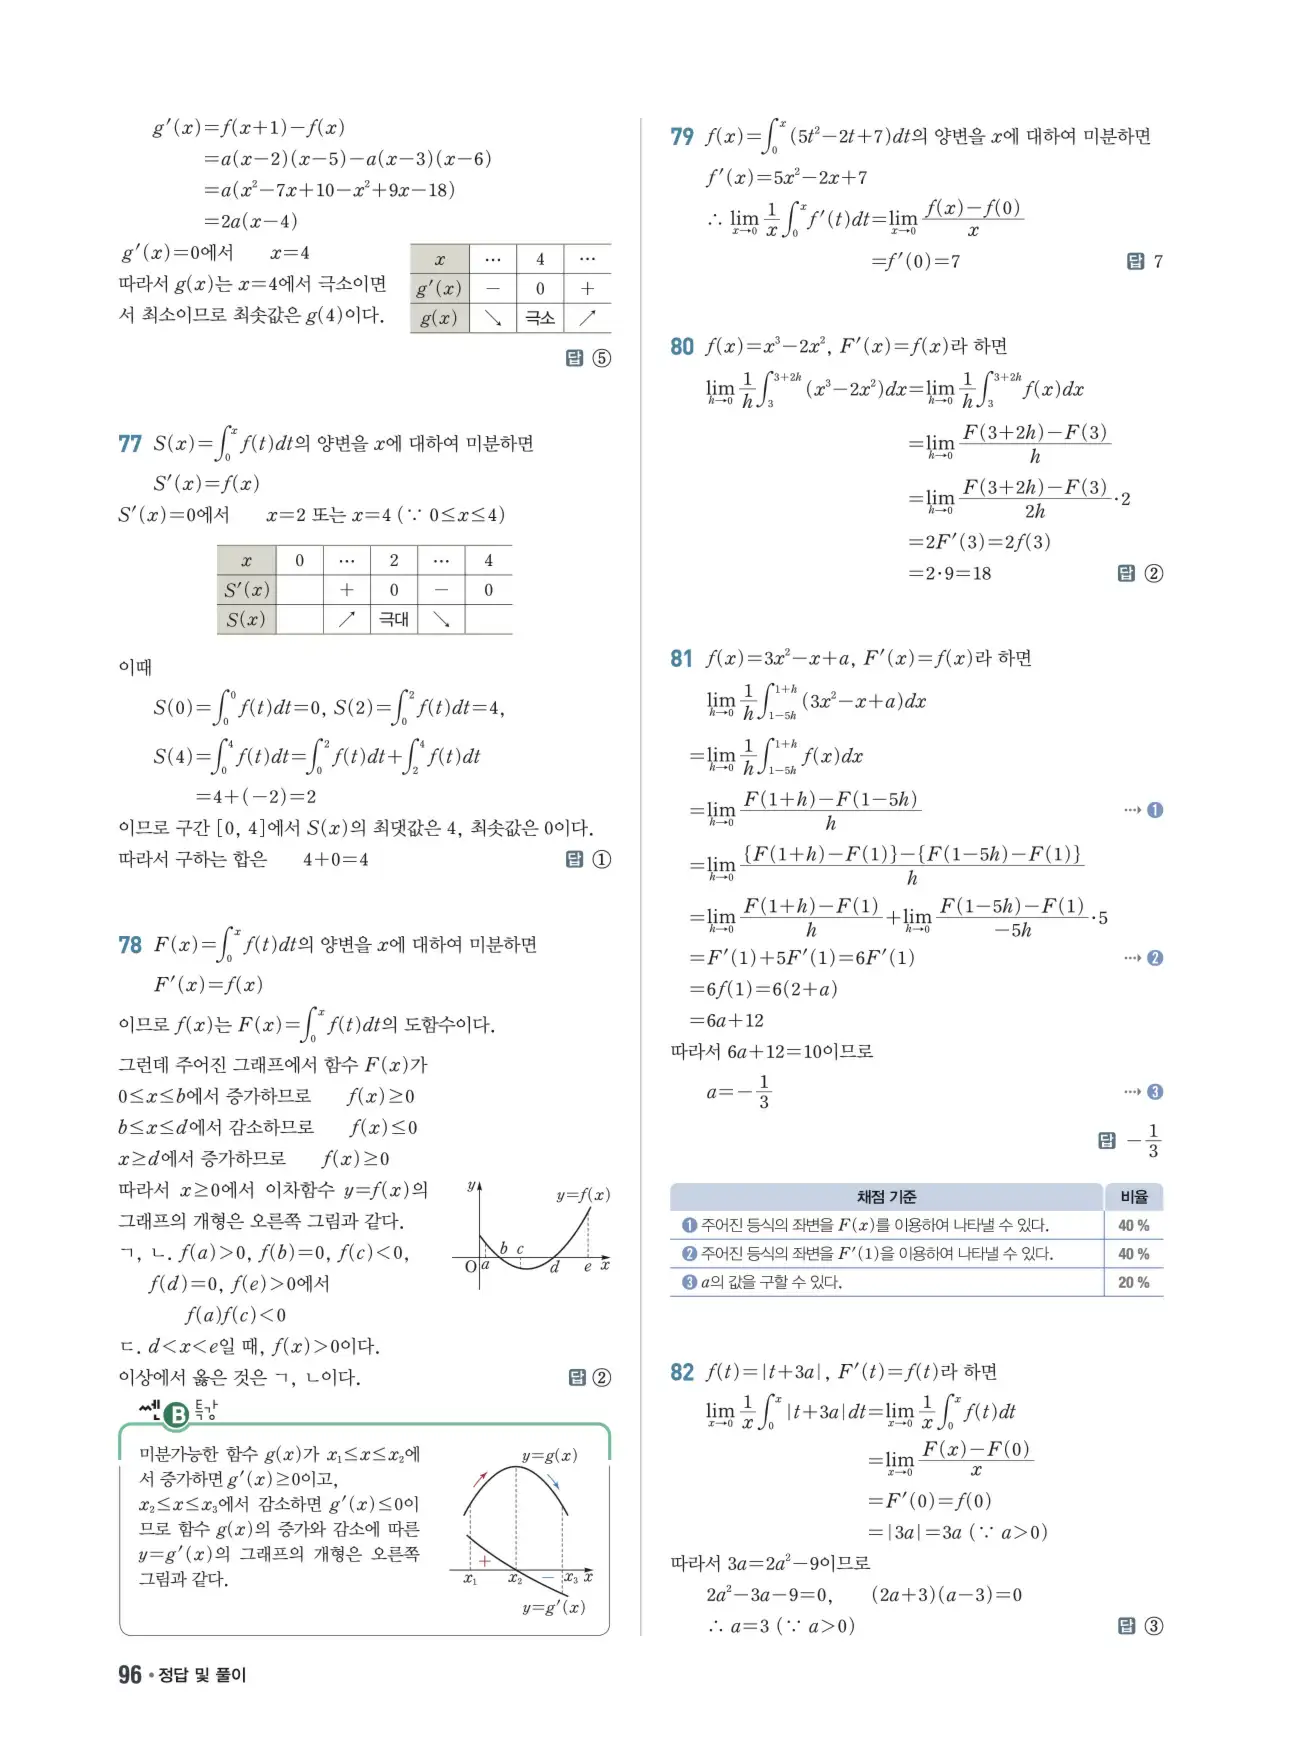 g′(x)=f(x+1)−f(x)
=a(x−2)(x−5)−a(x−3)(x−6)
=a(x²−7x+10−x²+9x−18)
=2a(x−4)
g′(x)=0에서 x=4
따라서 g(x)는 x=4에서 극소이면
서 최소이므로 최솟값은 g(4)이다.
x ⋯ 4 ⋯
g′(x) − 0 +
g(x) ↘ 극소 ↗
답 ⑤
77 S(x)=∫₀ˣ f(t)dt의 양변을 x에 대하여 미분하면
S′(x)=f(x)
S′(x)=0에서 x=2 또는 x=4 (∵ 0≤x≤4)
x 0 ⋯ 2 ⋯ 4
S′(x) + 0 − 0
S(x) ↗ 극대 ↘
이때
S(0)=∫₀⁰ f(t)dt=0, S(2)=∫₀² f(t)dt=4,
S(4)=∫₀⁴ f(t)dt=∫₀² f(t)dt+∫₂⁴ f(t)dt
=4+(−2)=2
이므로 구간 [0, 4]에서 S(x)의 최댓값은 4, 최솟값은 0이다.
따라서 구하는 합은 4+0=4 답 ①
78 F(x)=∫₀ˣ f(t)dt의 양변을 x에 대하여 미분하면
F′(x)=f(x)
이므로 f(x)는 F(x)=∫₀ˣ f(t)dt의 도함수이다.
그런데 주어진 그래프에서 함수 F(x)가
0≤x≤b에서 증가하므로 f(x)≥0
b≤x≤d에서 감소하므로 f(x)≤0
x≥d에서 증가하므로 f(x)≥0
따라서 x≥0에서 이차함수 y=f(x)의
그래프의 개형은 오른쪽 그림과 같다.
ㄱ, ㄴ. f(a)>0, f(b)=0, f(c)<0,
f(d)=0, f(e)>0에서
f(a)f(c)<0
ㄷ. d<x<e일 때, f(x)>0이다.
이상에서 옳은 것은 ㄱ, ㄴ이다. 답 ②
y y=f(x)
O a b c d e x
쎈 B 특강
미분가능한 함수 g(x)가 x₁≤x≤x₂에
서 증가하면 g′(x)≥0이고,
x₂≤x≤x₃에서 감소하면 g′(x)≤0이
므로 함수 g(x)의 증가와 감소에 따른
y=g′(x)의 그래프의 개형은 오른쪽
그림과 같다.
y=g(x)
+ −
x₁ x₂ x₃ x
y=g′(x)
96 • 정답 및 풀이
79 f(x)=∫₀ˣ (5t²−2t+7)dt의 양변을 x에 대하여 미분하면
f′(x)=5x²−2x+7
∴ lim_{x→0} 1/x ∫₀ˣ f′(t)dt=lim_{x→0} {f(x)−f(0)}/x
=f′(0)=7 답 7
80 f(x)=x³−2x², F′(x)=f(x)라 하면
lim_{h→0} 1/h ∫₃^{3+2h} (x³−2x²)dx=lim_{h→0} 1/h ∫₃^{3+2h} f(x)dx
=lim_{h→0} {F(3+2h)−F(3)}/h
=lim_{h→0} {F(3+2h)−F(3)}/2h ·2
=2F′(3)=2f(3)
=2·9=18 답 ②
81 f(x)=3x²−x+a, F′(x)=f(x)라 하면
lim_{h→0} 1/h ∫_{1−5h}^{1+h} (3x²−x+a)dx
=lim_{h→0} 1/h ∫_{1−5h}^{1+h} f(x)dx
=lim_{h→0} {F(1+h)−F(1−5h)}/h ⋯➔ ❶
=lim_{h→0} [{F(1+h)−F(1)}−{F(1−5h)−F(1)}]/h
=lim_{h→0} {F(1+h)−F(1)}/h +lim_{h→0} {F(1−5h)−F(1)}/−5h ·5
=F′(1)+5F′(1)=6F′(1) ⋯➔ ❷
=6f(1)=6(2+a)
=6a+12
따라서 6a+12=10이므로
a=−1/3 ⋯➔ ❸
답 −1/3
채점 기준 비율
❶ 주어진 등식의 좌변을 F(x)를 이용하여 나타낼 수 있다. 40 %
❷ 주어진 등식의 좌변을 F′(1)을 이용하여 나타낼 수 있다. 40 %
❸ a의 값을 구할 수 있다. 20 %
82 f(t)=|t+3a|, F′(t)=f(t)라 하면
lim_{x→0} 1/x ∫₀ˣ |t+3a|dt=lim_{x→0} 1/x ∫₀ˣ f(t)dt
=lim_{x→0} {F(x)−F(0)}/x
=F′(0)=f(0)
=|3a|=3a (∵ a>0)
따라서 3a=2a²−9이므로
2a²−3a−9=0, (2a+3)(a−3)=0
∴ a=3 (∵ a>0) 답 ③